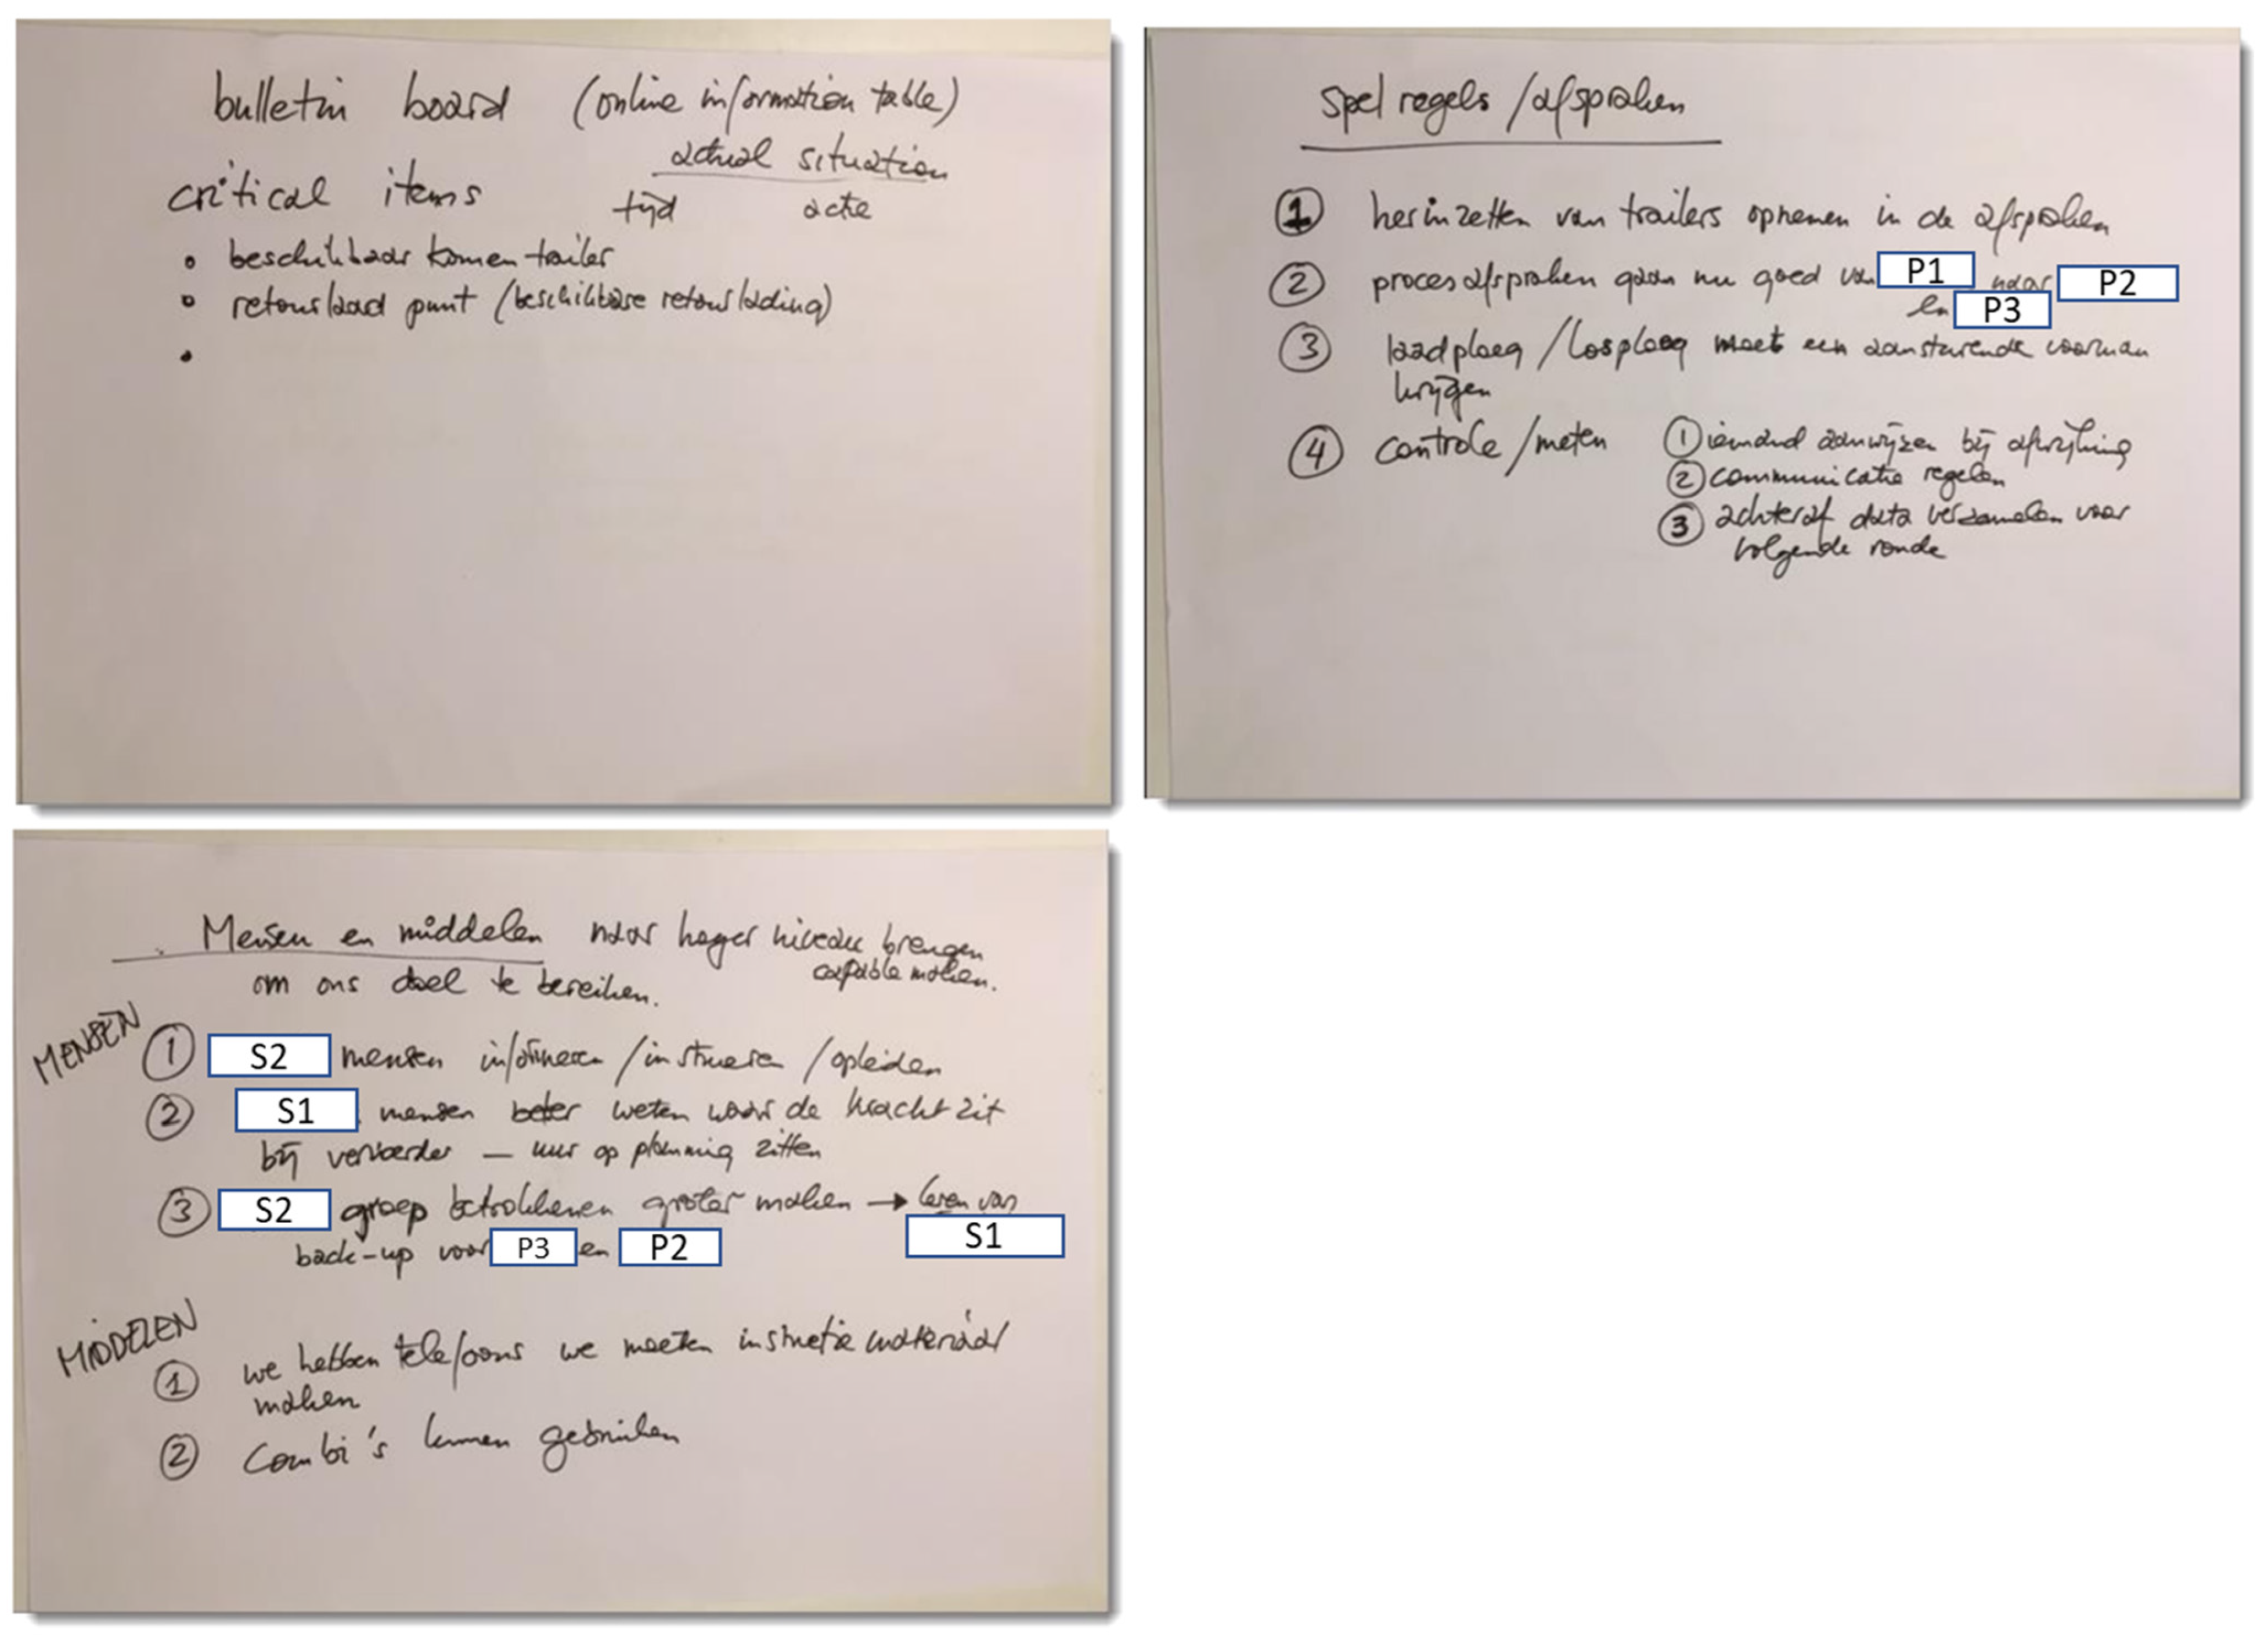 bulletin board (online information table)
actual situation
critical items tijd actie
• beschikbaar komen trailer
• retourlaad punt (beschikbare retourlading)
•
Spel regels / afspraken
1 herinzetten van trailers opnemen in de afspraken
2 proces afspraken gaan nu goed van P1 naar P2
en P3
3 laadploeg / losploeg moet een aansturende voorman
krijgen
4 controle / meten 1 iemand aanwijzen bij afwijking
2 communicatie regelen
3 achteraf data verzamelen voor
volgende ronde
Mensen en middelen naar hoger niveau brengen
capable maken.
om ons doel te bereiken.
MENSEN
1 S2 mensen informeren / instrueren / opleiden
2 S1 mensen beter weten waar de kracht zit
bij vervoerder — uur op planning zitten
3 S2 groep betrokkenen groter maken → leren van
S1
back-up voor P3 en P2
MIDDELEN
1 we hebben telefoons we moeten instructie materiaal
maken
2 Combi's kunnen gebruiken